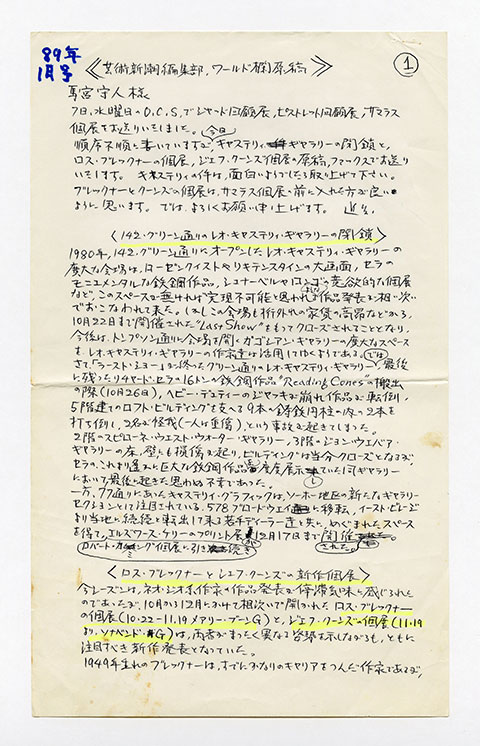 89年
1月号
①
《芸術新潮編集部, ワールド欄原稿》
宮守人様
7日, 水曜日のO.C.S.でジャッド回顧展, ピストレット回顧展, サマラス
個展をお送りいたしました。
順序不順に書いていますが, 今日, キャステリィ・ギャラリーの閉鎖と,
ロス・ブレックナーの個展, ジェフ・クーンズ個展の原稿, ファックスでお送り
いたします。 キャステリィの件は, 面白いようでしたら取り上げて下さい。
ブレックナーとクーンズの個展は, サマラス個展の前に入れた方が良い
ように思います。 では, よろしくお願い申し上げます。
〈142・グリーン通りのレオ・キャステリィ・ギャラリーの閉鎖〉
1980年, 142・グリーン通りにオープンしたレオ・キャステリィ・ギャラリーの
広大な会場は, ローゼンクイストやリキテンスタインの大画面, セラの
モニュメンタルな鉄鋼作品, シュナーベルやロンゴの意欲的な個展
など, このスペースが無ければ実現不可能と思われるような作品発表が相次い
でおこなわれて来た。しかしこの会場も桁外れの家賃の高昂などから,
10月22日まで開催された"Last Show"をもってクローズされることとなり,
今後は, トンプソン通りに会場を開くガゴシアン・ギャラリーの広大なスペース
をレオ・キャステリィ・ギャラリーの作家達は活用してゆくようである。
さて, "ラースト・ショー"が終ったグリーン通りのギャラリーでは, 最後
に残ったリチャード・セラの16トンの鉄鋼作品"Reading Cones"の搬出
の際(10月26日), ヘビー・デューティーのジャッキが崩れ作品が転倒,
5階建てのロフト・ビルディングを支える9本の鋳鉄円柱の内の2本を
打ち倒し, 2名が怪我(一人は重傷), という事故が起きてしまった。
2階のスピローネ・ウエスト・ウオーター・ギャラリー, 3階のジョン・ウエバア・
ギャラリーの床, 壁にも損傷が起り, ビルディングは当分クローズとなるが,
セラの, これより遥かに巨大な鉄鋼作品を度々展示していた同ギャラリー
において最後に起きた思わぬ不幸であった。
一方, 77通りにあったキャステリィ・グラフィックは, ソーホー地区の新たなギャラリー
セクションとして注目されている, 578ブロードウェイに移転, イースト・ビレージ
より当地に続続と転出して来る若手ディーラー達と共に, めぐまれたスペース
を得て, エルズワース・ケリーのプリント展が12月17日まで開催された。
〈ロス・ブレックナーとジェフ・クーンズの新作個展〉
今シーズンは, ネオ・ジオ系作家の作品発表が停滞気味に感じられた
のであったが, 10月から12月にかけて相次いで開かれたロス・ブレックナー
の個展(10・22−11.19 メアリー・ブーンG)と, ジェフ・クーンズの個展(11・19
より, ソナベンドG)は, 両者がまったく異なる容貌を示しながらも, ともに
注目すべき新作発表となっていた。
1949年生れのブレックナーは, すでにかなりのキャリアをつんだ作家であるが,